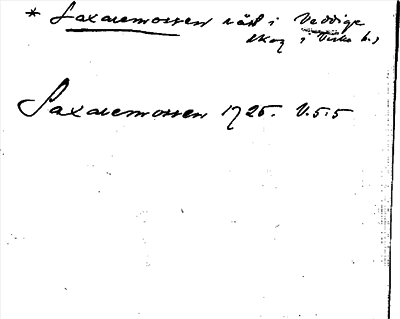 * Saxaremossenväst i Veddige
skog i Viske h.)
Saxaremossen 1725. V.5:5